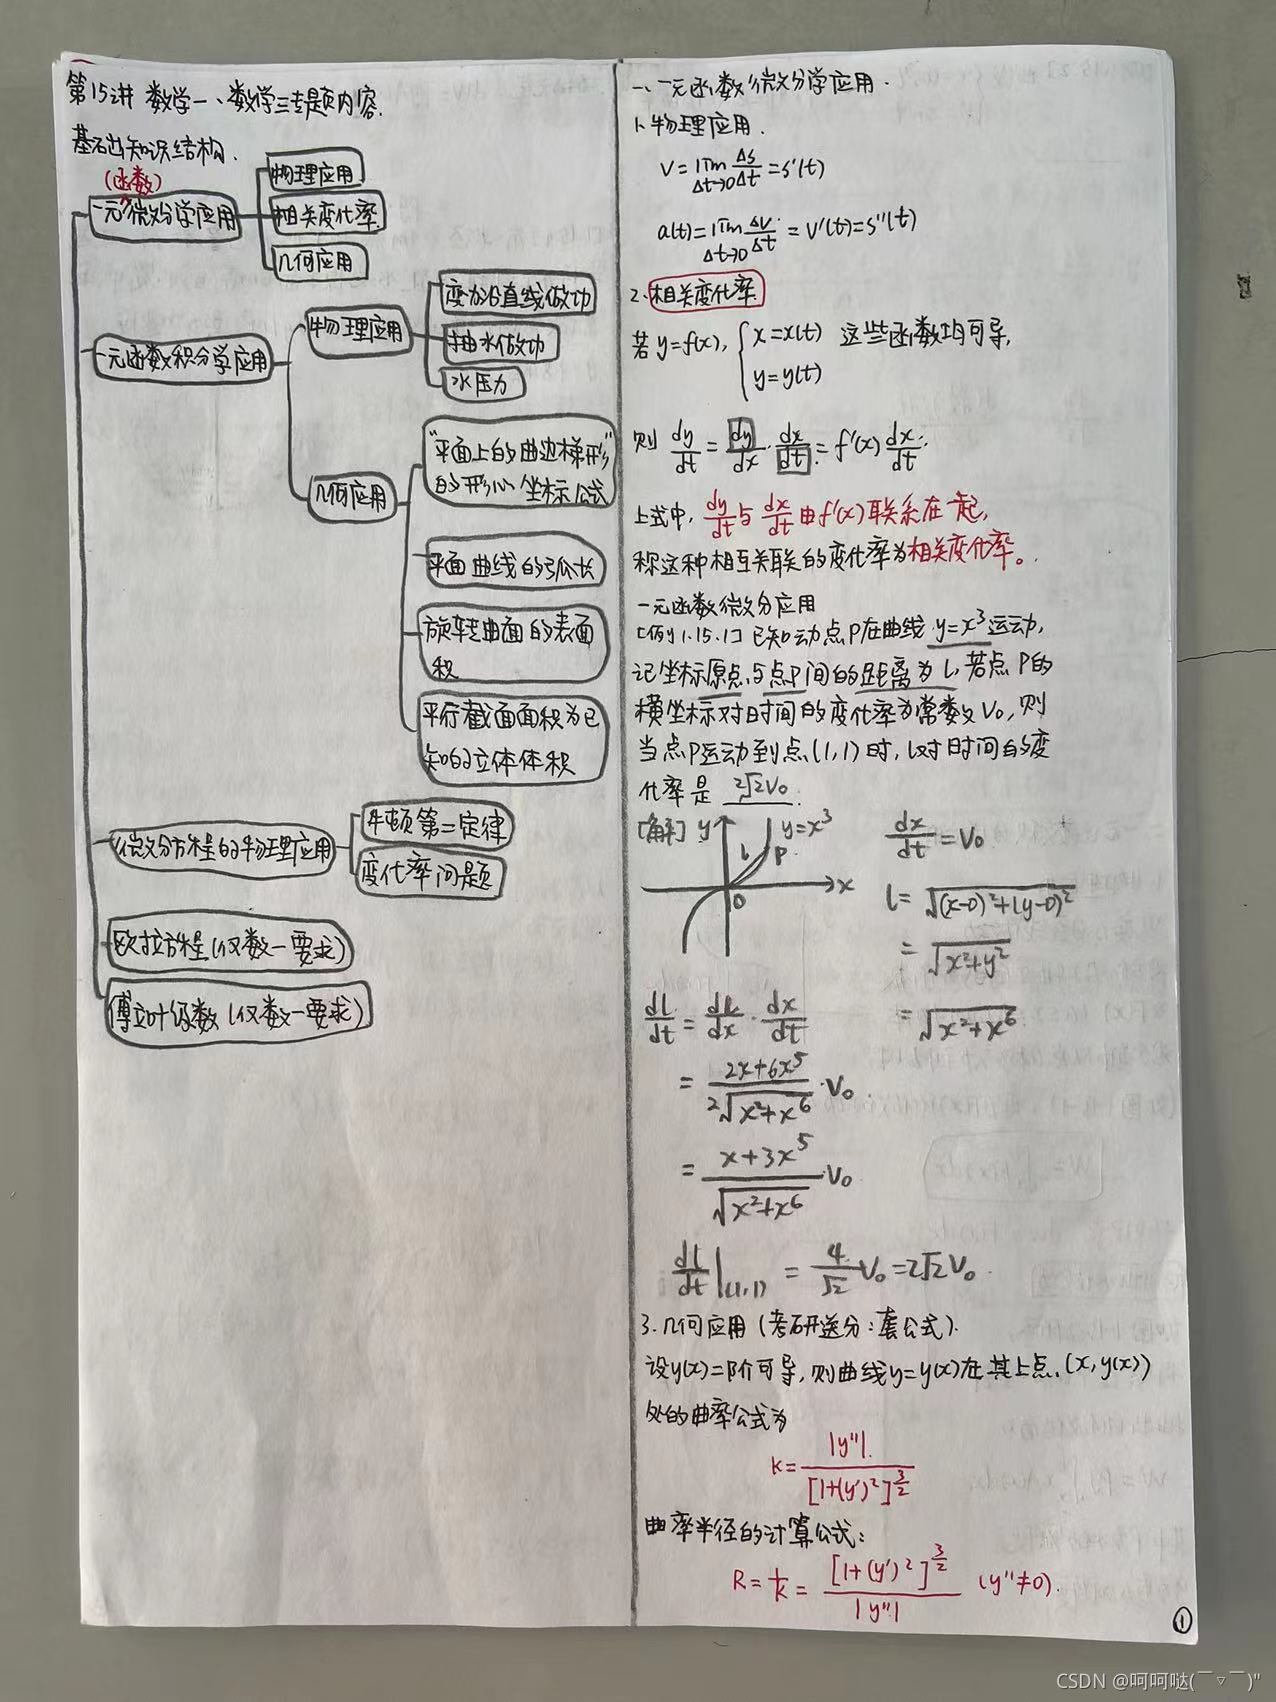 第15讲 数学一、数学三专题内容.
基础知识结构.
(函数)
一元^微分学应用
物理应用
相关变化率
几何应用
一元函数积分学应用
物理应用
变力沿直线做功
抽水做功
水压力
几何应用
"平面上的曲边梯形"
的形心坐标公式
平面曲线的弧长
旋转曲面的表面
积
平行截面面积为已
知的立体体积
微分方程的物理应用
牛顿第二定律
变化率问题
欧拉方程(仅数一要求)
傅立叶级数(仅数一要求)
一、一元函数微分学应用.
1.物理应用.
v=lim Δs/Δt=s'(t)
Δt→0
a(t)=lim Δv/Δt=v'(t)=s''(t)
Δt→0
2.相关变化率
若y=f(x), { x=x(t) 这些函数均可导,
y=y(t)
则 dy/dt = dy/dx · dx/dt = f'(x) dx/dt.
上式中, dy/dt 与 dx/dt 由f'(x)联系在一起,
称这种相互关联的变化率为相关变化率。
一元函数微分应用
[例1.15.1] 已知动点P在曲线 y=x³运动,
记坐标原点与点P间的距离为l,若点P的
横坐标对时间的变化率为常数V₀,则
当点P运动到点(1,1)时,l对时间的变
化率是 2√2V₀.
[解] y y=x³ dx/dt=V₀
l P
0 x l=√((x-0)²+(y-0)²)
=√(x²+y²)
=√(x²+x⁶)
dl/dt = dl/dx · dx/dt
= (2x+6x⁵)/(2√(x²+x⁶)) ·V₀
= (x+3x⁵)/√(x²+x⁶) ·V₀
dl/dt|(1,1) = 4/√2 V₀=2√2V₀.
3.几何应用(考研送分:套公式).
设y(x)二阶可导,则曲线y=y(x)在其上点(x,y(x))
处的曲率公式为
K= |y''|/[1+(y')²]^(3/2)
曲率半径的计算公式:
R=1/K= [1+(y')²]^(3/2)/|y''| (y''≠0).
①
CSDN @呵呵哒(￣▽￣)"